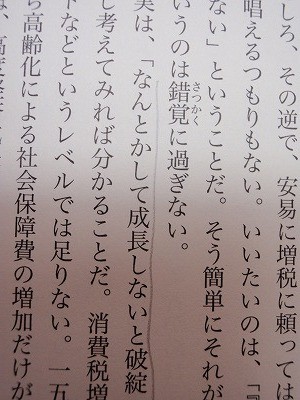 しろ、その逆で、安易に増税に頼っては
唱えるつもりもない。いいたいのは、「『
ない」ということだ。そう簡単にそれが
いうのは錯覚に過ぎない。
さっかく
実は、「なんとかして成長しないと破綻
し考えてみれば分かることだ。消費税増
トなどというレベルでは足りない。一五
ら高齢化による社会保障費の増加だけが